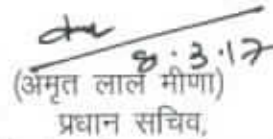 8.3.17
(अमृत लाल मीणा)
प्रधान सचिव,